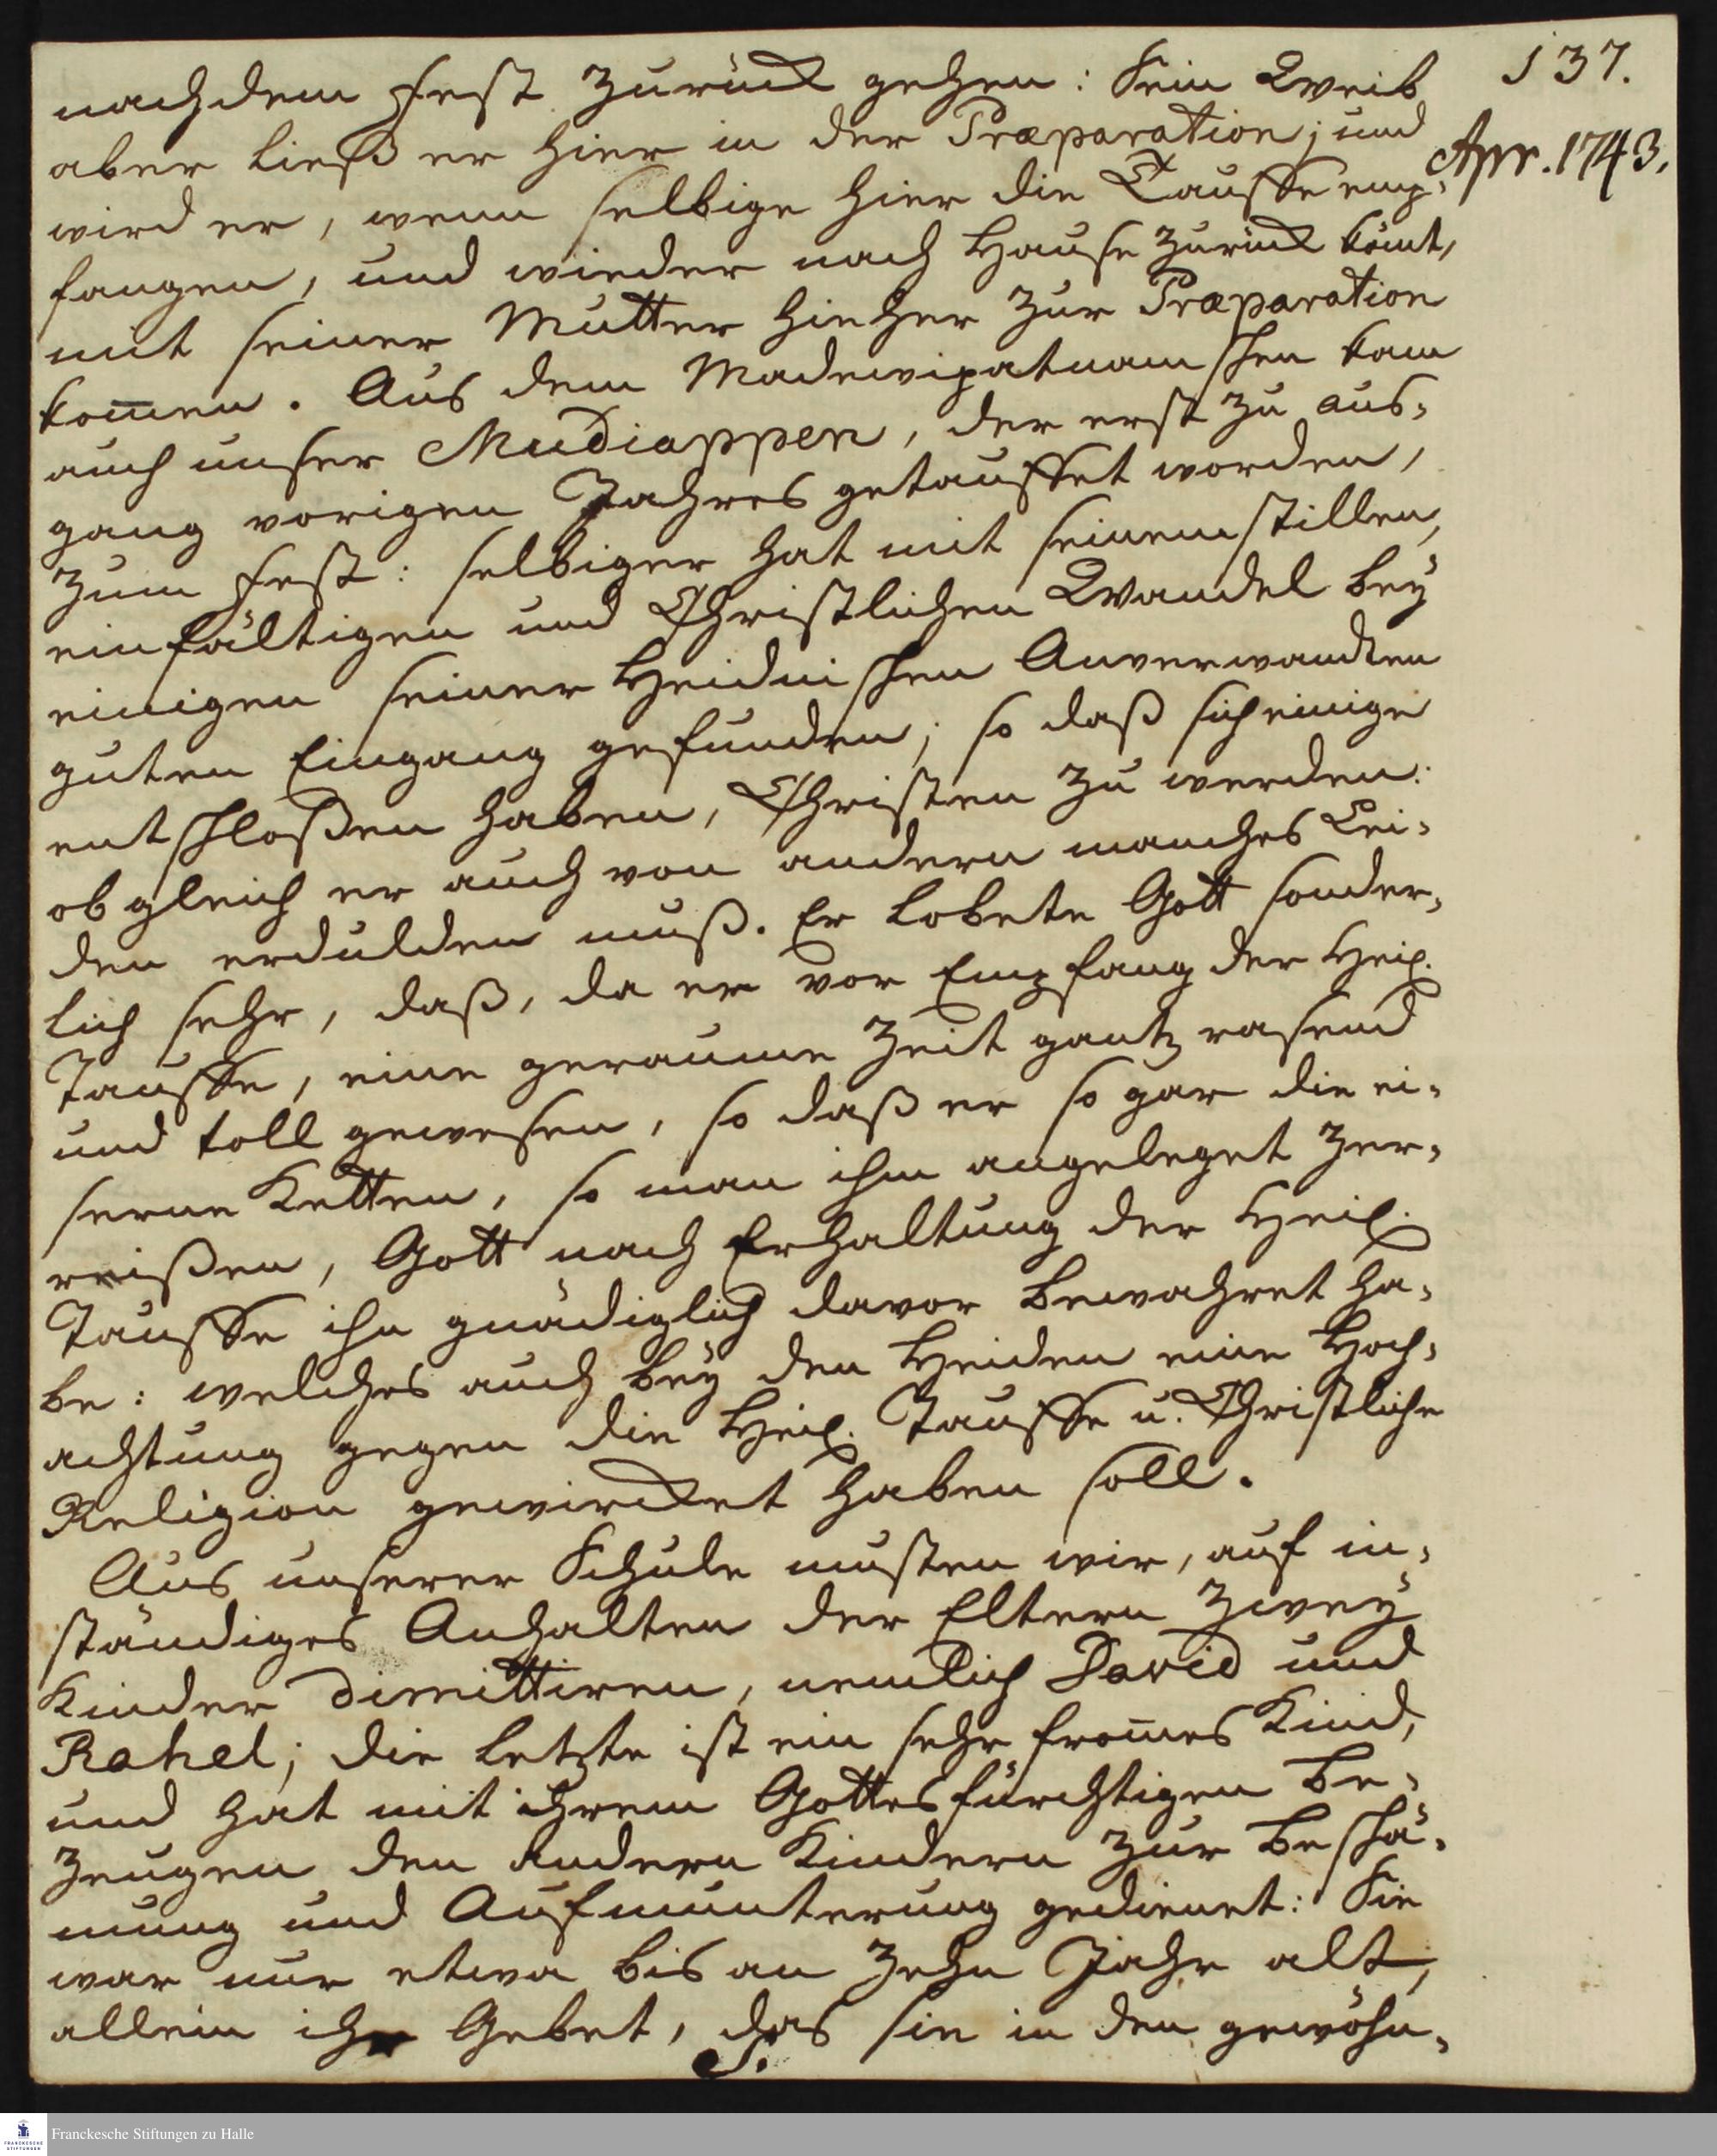 137.
Apr. 1743.
nach dem Fest zurück gehen: Sein Weib
aber ließ er hier in der Præparation; und
wird er, wenn selbige hier die Tauffe emp-
fangen, und wieder nach Hause zurück kömt,
mit seiner Mutter hieher zur Præparation
kom̅en. Aus dem Madewipatnamschen kam
auch unser Mudiappen, der erst zu aus-
gang vorigen Jahres getauffet worden,
zum Fest: selbiger hat mit seinem stillen,
einfältigen und Christlichen Wandel bey
einigen seiner Heidnischen Anverwandten
guten Eingang gefunden; so daß sich einige
entschloßen haben, Christen zu werden:
obgleich er auch von andern manches Lei-
den erdulden muß. Er lobete Gott sonder-
lich sehr, daß, da er vor Empfang der Heil.
Tauffe, eine geraume Zeit gantz rasend
und toll gewesen, so daß er so gar die ei-
serne Ketten, so man ihm angeleget zer-
reißen, Gott nach Erhaltung der Heil.
Tauffe ihn gnädiglich davor bewahret ha-
be: welches auch bey den Heiden eine Hoch-
achtung gegen die Heil. Tauffe u. Christliche
Religion gewircket haben soll.
Aus unserer Schule musten wir, auf in-
ständiges Anhalten der Eltern zwey
Kinder dimittiren, nemlich David und
Rahel; die letzte ist ein sehr from̅es Kind,
und hat mit ihrem Gottesfürchtigen Be-
zeugen den andern Kindern zur Beschä-
mung und Aufmunterung gedienet: Sie
war nur etwa bis an zehn Jahr alt,
allein ihr Gebet, das sie in den gewöhn-
S.
Franckesche Stiftungen zu Halle
FRANCKESCHE
STIFTUNGEN